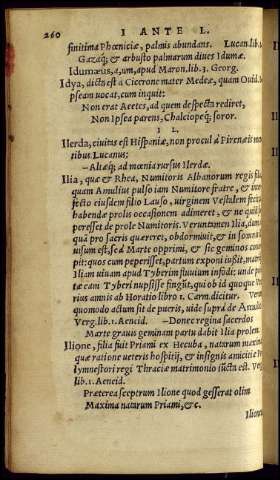 260 I ANTE L.
finitima Phœniciæ, palmis abundans. Lucan.lib.
Gazaq́; & arbusto palmarum dives Idumæ.
Idumæus,a,um,apud Maron.lib.3. Georg.
Idya, dicta est a Cicerone mater Medeæ, quam Ouid.
pseam uocat, cum inquit:
Non erat Aeetes, ad quem despecta rediret,
Non Ipsea parens, Chalciopeq́; soror.
I L.
Ilerda, ciuitas est Hispaniæ, non procul à Pirenæis
tibus. Lucanus:
ad mœnia rursus Ilerdæ.
Ilia, quæ & Rhea, Numitoris Albanorum regis
quam Amulius pulso iam Numitore fratre, &
fecto eiusdem filio Lauso, uirginem Vestalem
habendæ prolis occasionem adimeret, & ne
peresset de prole Numitoris. Veruntamen Ilia,
qua pro sacris quæreret, obdormiuit, & in
uisum est, se à Marte opprimi, & sic geminos
pit: quos cum peperisset, partum exponi iußit,
Iliam uiuam apud Tyberim fluuium infodi: unde
tæ eam Tyberi nupsisse fingūt, qui ob id quoque
rius amnis ab Horatio libro 1. Carm. dicitur.
quomodo actum sit de pueris, uide suprà de
Verg.lib.1.Aeneid. —Donec regina sacerdos
Marte grauis geminam partu dabit Ilia prolem.
Ilione, filia fuit Priami ex Hecuba, natarum
quæ ratione ueteris hospitij, & insignis amicitiæ
lymnestori regi Thraciæ matrimonio iūcta est.
lib.1.Aeneid.
Præterea sceptrum Ilione quod gesserat olim
Maxima natarum Priami, &c.